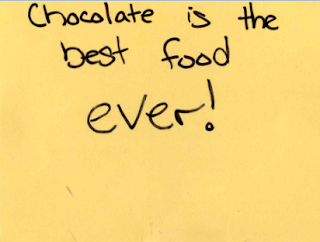 Chocolate is the
best food
ever!